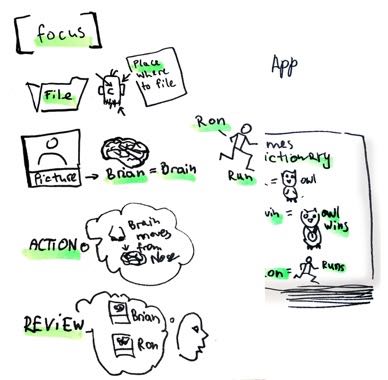 [focus]
File
C
Place
where
to file
Picture
Brian = Brain
ACTION
Brain
moves
from
Nose
REVIEW
Brian
Ron
App
Ron
Run
mes
ictionary
= owl
= owl
wins
on = Runs